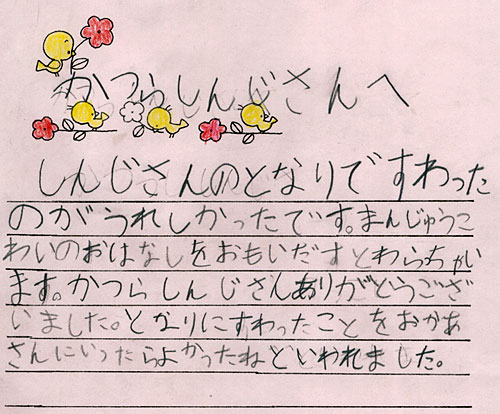 かつらしんじさんへ
しんじさんのとなりですわった
のがうれしかったです。まんじゅうこ
わいのおはなしをおもいだすとわらちゃい
ます。かつらしんじさんありがとうござ
いました。となりにすわったことをおかあ
さんにいったらよかったねといわれました。